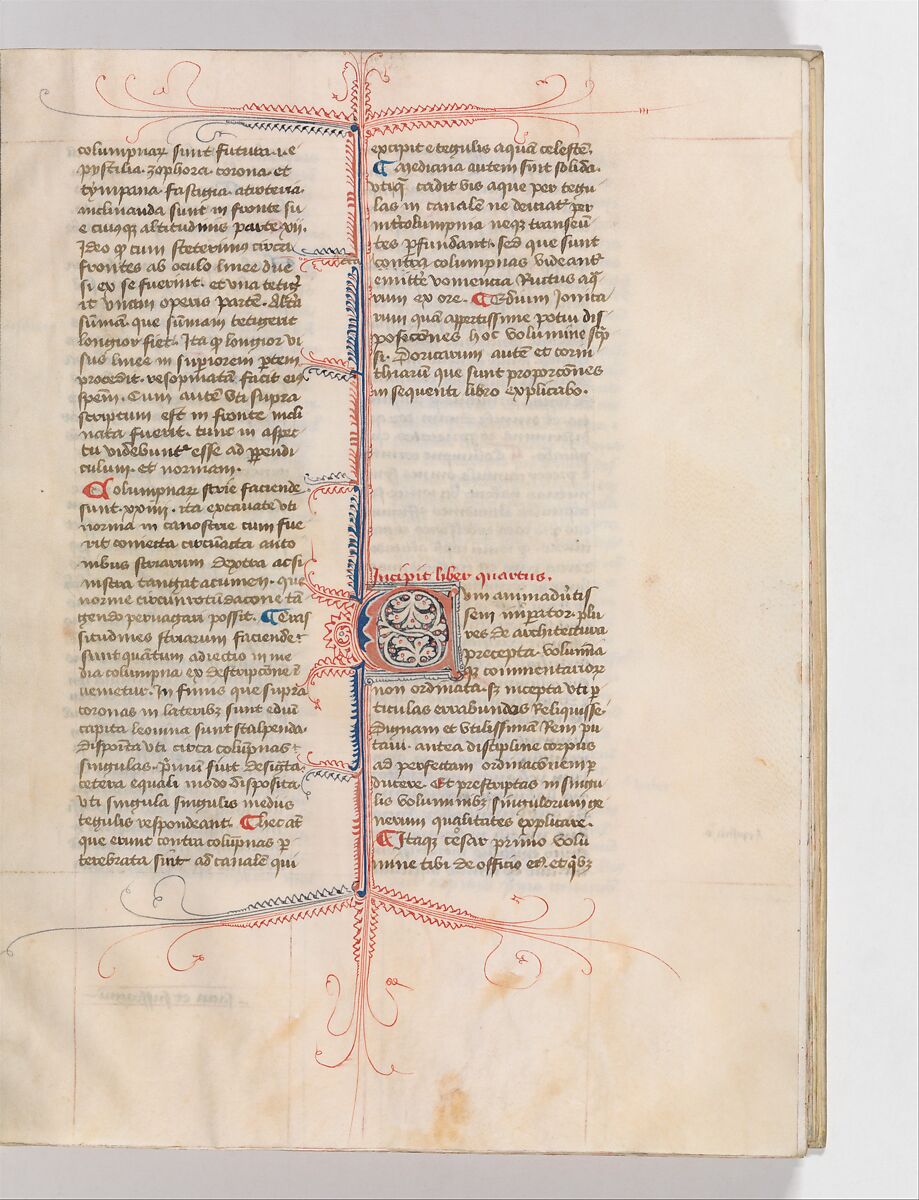 columpnar sunt futura. i e
pystilia. zophora. corona. et
tympana. fastigia. atroteria.
inclinanda sunt in fronte su
e cuiusq altitudinis parte xij.
Ideo q cum steterimus circa
frontes ab oculo linee due
si ex se fuerint. et vna tetig
it vnam operis partē. Altā
sūmā. que sūmam tetigerit
longior fiet. Ita q longior vi
sus linee in supiorem ptem
procedit. resopinatā facit eiꝰ
spēm. Cum autē vti supra
scriptum est in fronte incli
nata fuerit. tunc in aspec
tu videbunt esse ad ppendi
culum. et normam.
Columpnar strie faciende
sunt. xxiiii. ita excauate vti
norma in canostrie cum fue
rit coniecta circūacta anto
nibus striarum dextra ac si
nistra tangat acumen. que
norme circūn rotūdacōne tā
gendo peruagari possit. Cras
situdines striarum faciende
sunt quātum adiectio in me
dia columpna ex descripcōne ī
uenietur. In simis que supra
coronas in lateribꝫ sunt ediū
capita leonina sunt stalpenda.
disposita vti circa colūpnas
singulas. pmū sint designata.
cetera equali modo disposita
vti singula singulis medius
tegulis respondeant. Hec at
que erunt contra colūpnas p
terebrata sint ad canalē qui
excipit e tegulis aquā celestē.
Mediana autem sint solida.
vtiq cadit vis aque per tegu
las in canalē ne deiciat per
int'columpnia neq transeū
tes pfundant. sed que sunt
contra columpnas videant
emitte vomencia Ructus aq
rum ex ore. Edium Jonica
rum quā appertissime potui dis
posicōnes hoc volumine sc̄p
si. Doricarum autē et corin
thiarū que sunt proporcōnes
in sequenti libro explicabo.
Incipit liber quartus.
Cum animaduertis
sem imperator. plu
res de architectura
precepta. volumina
q commentarior
non ordinata. sꝫ incepta vti p
ticulas errabundas Reliquisse.
Dignam et vtilissimā Rem pu
taui. antea discipline corpus
ad perfectam ordinacōnem p
ducere. Et prescriptas in singu
lis voluminibꝫ singulorum ge
nerum qualitates explicare.
Itaqꝫ cesar primo volu
mine tibi de officio eiꝰ. et qibꝫ